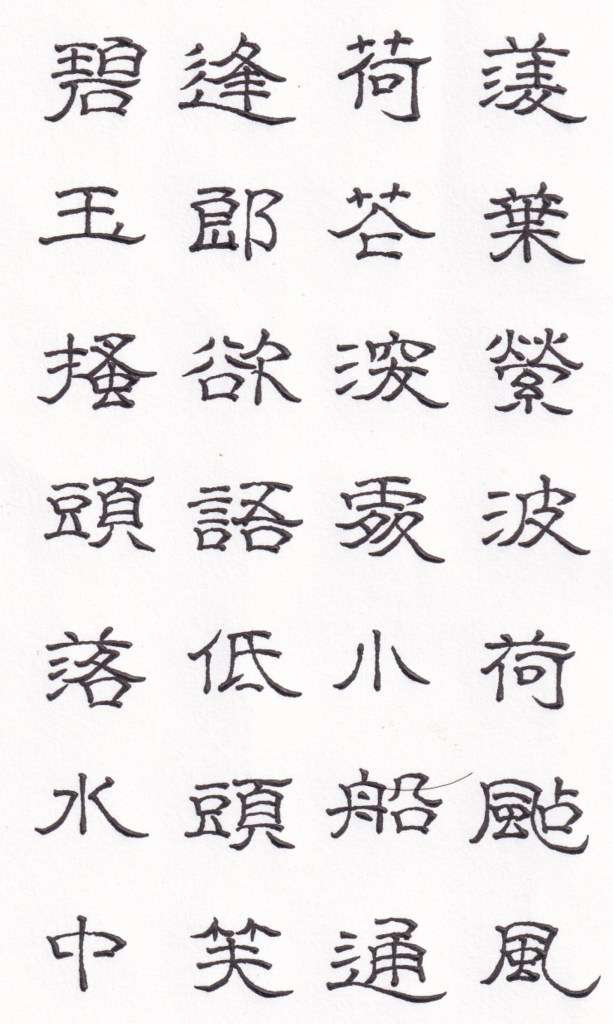 蔆葉縈波荷颭風
荷花深處小船通
逢郎欲語低頭笑
碧玉搔頭落水中